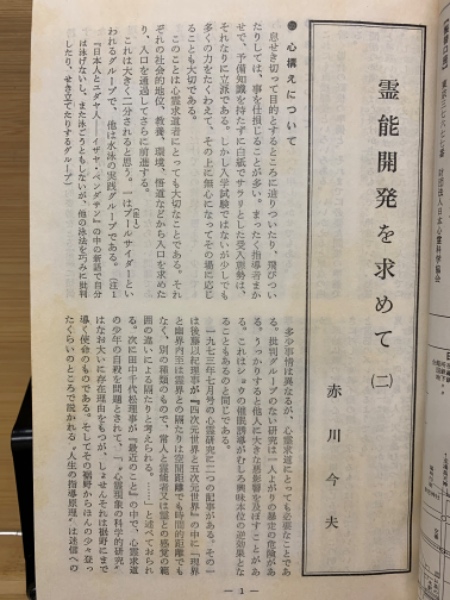 霊能開発を求めて（二）
赤川今夫
● 心構えについて
息せき切って目的とするところに辿りついたり、飛びつい
たりしては、事を仕損じることが多い。まったく指導者まか
せで、予備知識を持たずに白紙でサラリとした受入態勢は、
それなりに立派である。しかし入学試験ではないが少しでも
多くの力をたくわえて、その上に無心になってその場に応じ
ることも大切である。
このことは心霊求道者にとっても大切なことである。それ
ぞれの社会的地位、教養、環境、悟道などから入口を求めた
り、入口を通過してさらに前進する。
これは大きく二分されると思う。一はプールサイダーとい
（註1）
われるグループで、他は水泳の実践グループである。（註1
『日本人とユダヤ人――イザヤ・ベンダサン』の中の新語で自分
は泳げないし、また泳ごうともしないが、他の泳法を巧みに批判
したり、せき立てたりするグループ）
多少事情は異なるが、心霊求道にとっても必要なことであ
る。批判グループのない研究は一人よがりの暴走の危険があ
る。うっかりすると他人に大きな悪影響を及ぼすことがあ
る。これはショウの催眠誘導がむしろ興味本位の逆効果とな
ることもあるのと同じである。
一九七三年七月号の心霊研究に二つの記事がある。その一
は後藤以紀理事が『四次元世界と五次元世界』の中に「現界
と幽界乃至は霊界との隔たりは空間距離でも時間的距離でも
なく、別の種類のもので、常人と霊能者又は霊との感覚の範
囲の違いによる隔たりと考えられる。……」と述べておられ
る。次に田中千代松理事が『最近のこと』の中で、心霊求道
の少年の自殺を問題とされて、「〝心霊現象の科学的研究〟
はなお大いに存在理由をもつが、しょせんそれは裾野にまで
導く使命のものである。そしてその裾野からほんの少々登っ
たくらいのところで説かれる〝人生の指導原理〟は迷信への
— 1 —
財団法人日本心霊科学協会